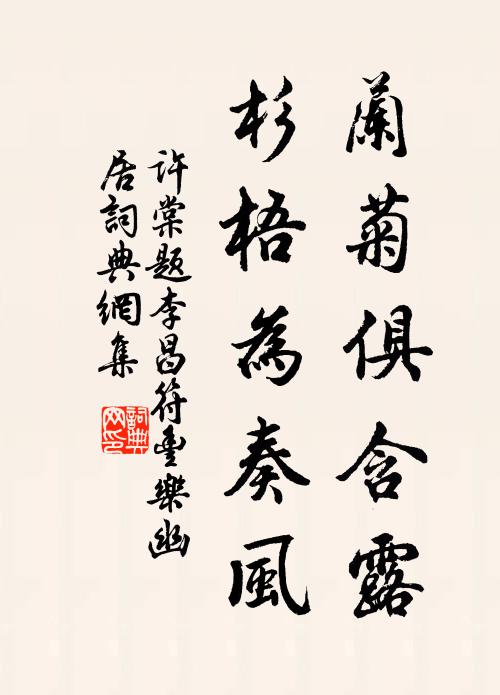 蘭菊俱含露
杉梧為奏風
許棠题李昌符豐樂幽
居詞典網集
詞典
网印